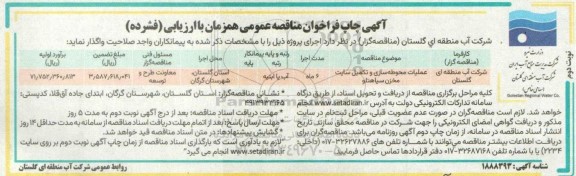 آگهی چاپ فراخوان مناقصه عمومی همزمان با ارزیابی (فشرده)
شرکت آب منطقه ای گلستان (مناقصه‌گزار) در نظر دارد اجرای پروژه ذیل را با مشخصات ذکر شده به پیمانکاران واجد صلاحیت واگذار نماید:
کارفرما (مناقصه گزار)
موضوع مناقصه
مدت اجرا
رشته و پایه پیمانکار
رشته
پایه
محل اجرا
مسئول فنی
توسعه
مبلغ تضمین (ریال)
برآورد اولیه (ریال)
شرکت آب منطقه ای گلستان
عملیات محوطه‌سازی و تکمیل سایت مخازن سیاهتلو
۶ ماه
آب یا ابنیه
استان گلستان، شهرستان گرگان
معاونت طرح و توسعه
کلیه مراحل برگزاری مناقصه از دریافت و تحویل اسناد، از طریق درگاه
سامانه تدارکات الکترونیکی دولت به آدرس www.setadiran.ir انجام
خواهد شد. لازم است مناقصه‌گران در صورت عدم عضویت قبلی، مراحل ثبت‌نام در سایت
مذکور و دریافت گواهی امضای الکترونیکی را جهت شرکت در مناقصه محقق سازند. تاریخ
انتشار اسناد مناقصه در سامانه، از زمان چاپ دوم آگهی روزنامه می‌باشد. مناقصه‌گران برای
دریافت اطلاعات بیشتر مناقصه می‌توانند با شماره تلفن های
دفتر قراردادها تماس حاصل فرمایند.
نشانی مناقصه‌گزار: استان گلستان، شهرستان گرگان، ابتدای جاده آق‌قلا، کدپستی:
مهلت دریافت اسناد مناقصه: بعد از درج آگهی نوبت دوم به مدت ۵ روز
گشایش پیشنهادها: در متن اسناد مناقصه قید خواهد شد.
لازم به یادآوری است که بارگذاری اسناد مناقصه از زمان چاپ آگهی نوبت دوم بر روی سایت
www.setadiran.ir انجام می گیرد
شناسه آگهی: ۱۸۸۸۳۹۳
روابط عمومی شرکت آب منطقه ای گلستان